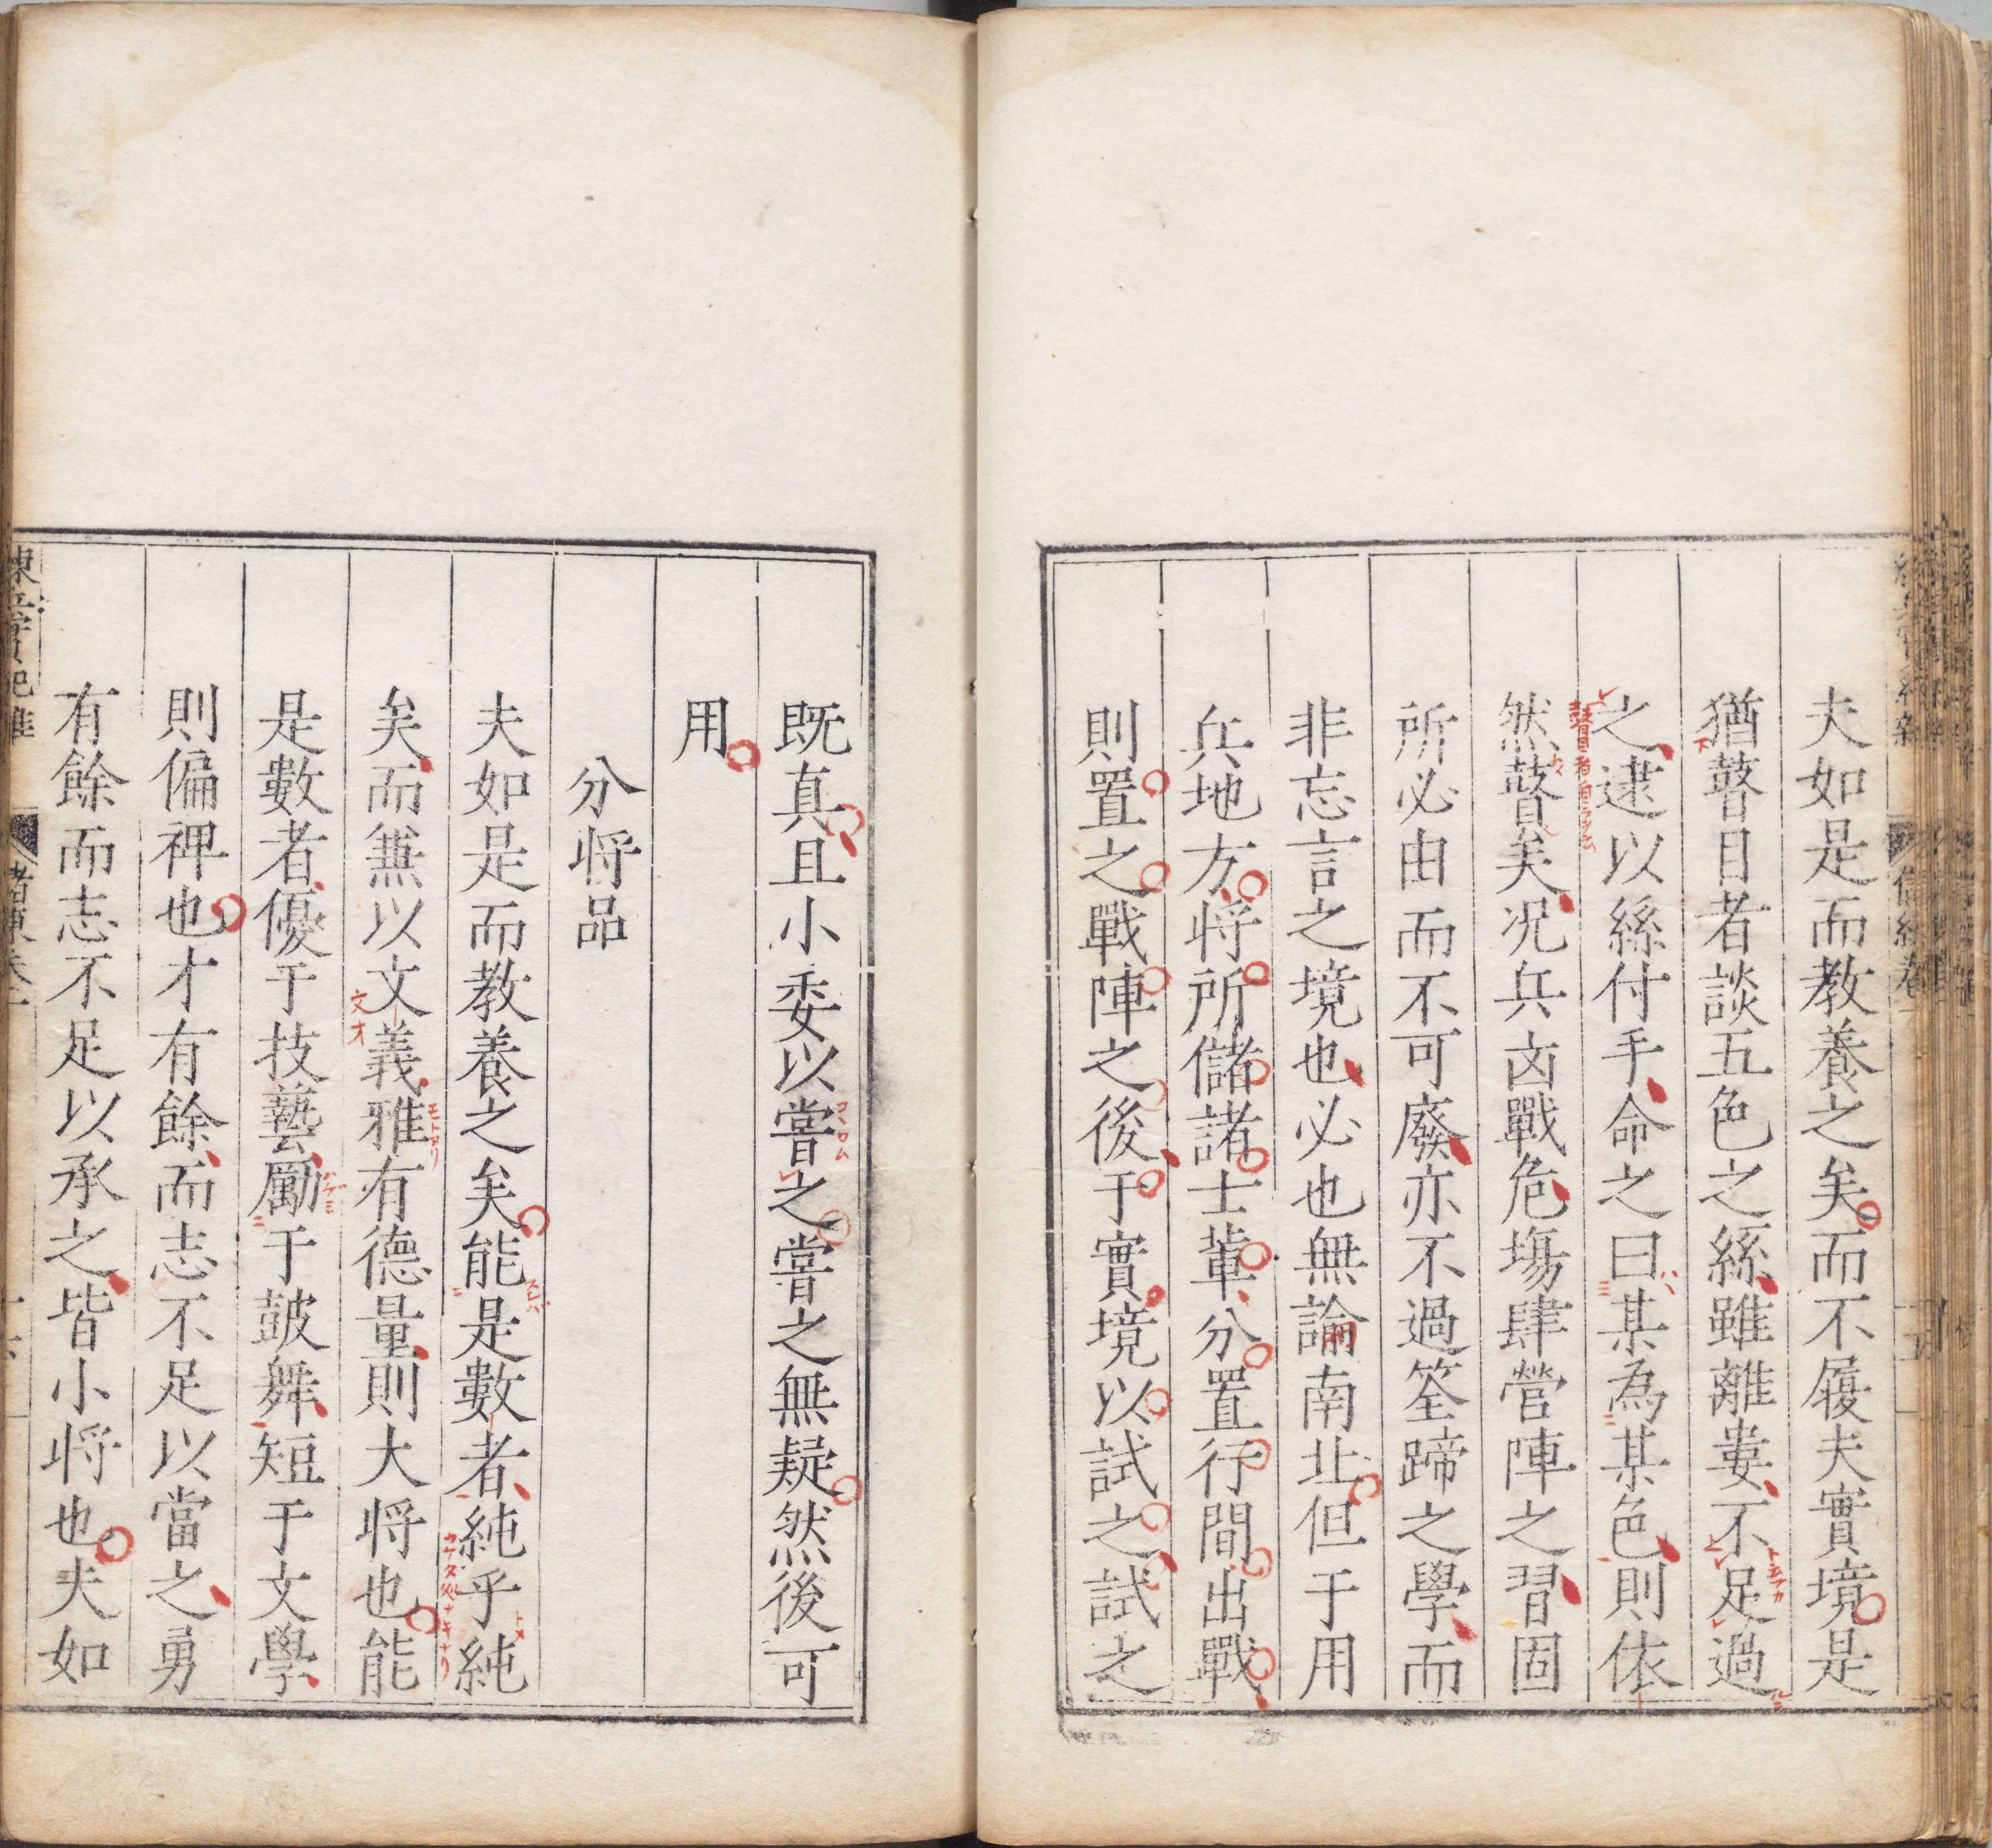 夫如是而教養之矣而不履夫實境是
猶瞽目者談五色之絲雖離婁不足過
之逮以絲付手命之曰某為某色則依
然瞽矣况兵凶戰危塲肆營陣之習固
所必由而不可廢亦不過筌蹄之學而
非忘言之境也必也無論南北但于用
兵地方將所儲諸士輩分置行間出戰
則置之戰陣之後于實境以試之試之
既真且小委以嘗之嘗之無疑然後可
用
分將品
夫如是而教養之矣能是數者純乎純
矣而兼以文義雅有德量則大將也能
是數者優于技藝勵于鼓舞短于文學
則偏裨也才有餘而志不足以當之勇
有餘而志不足以承之皆小將也夫如